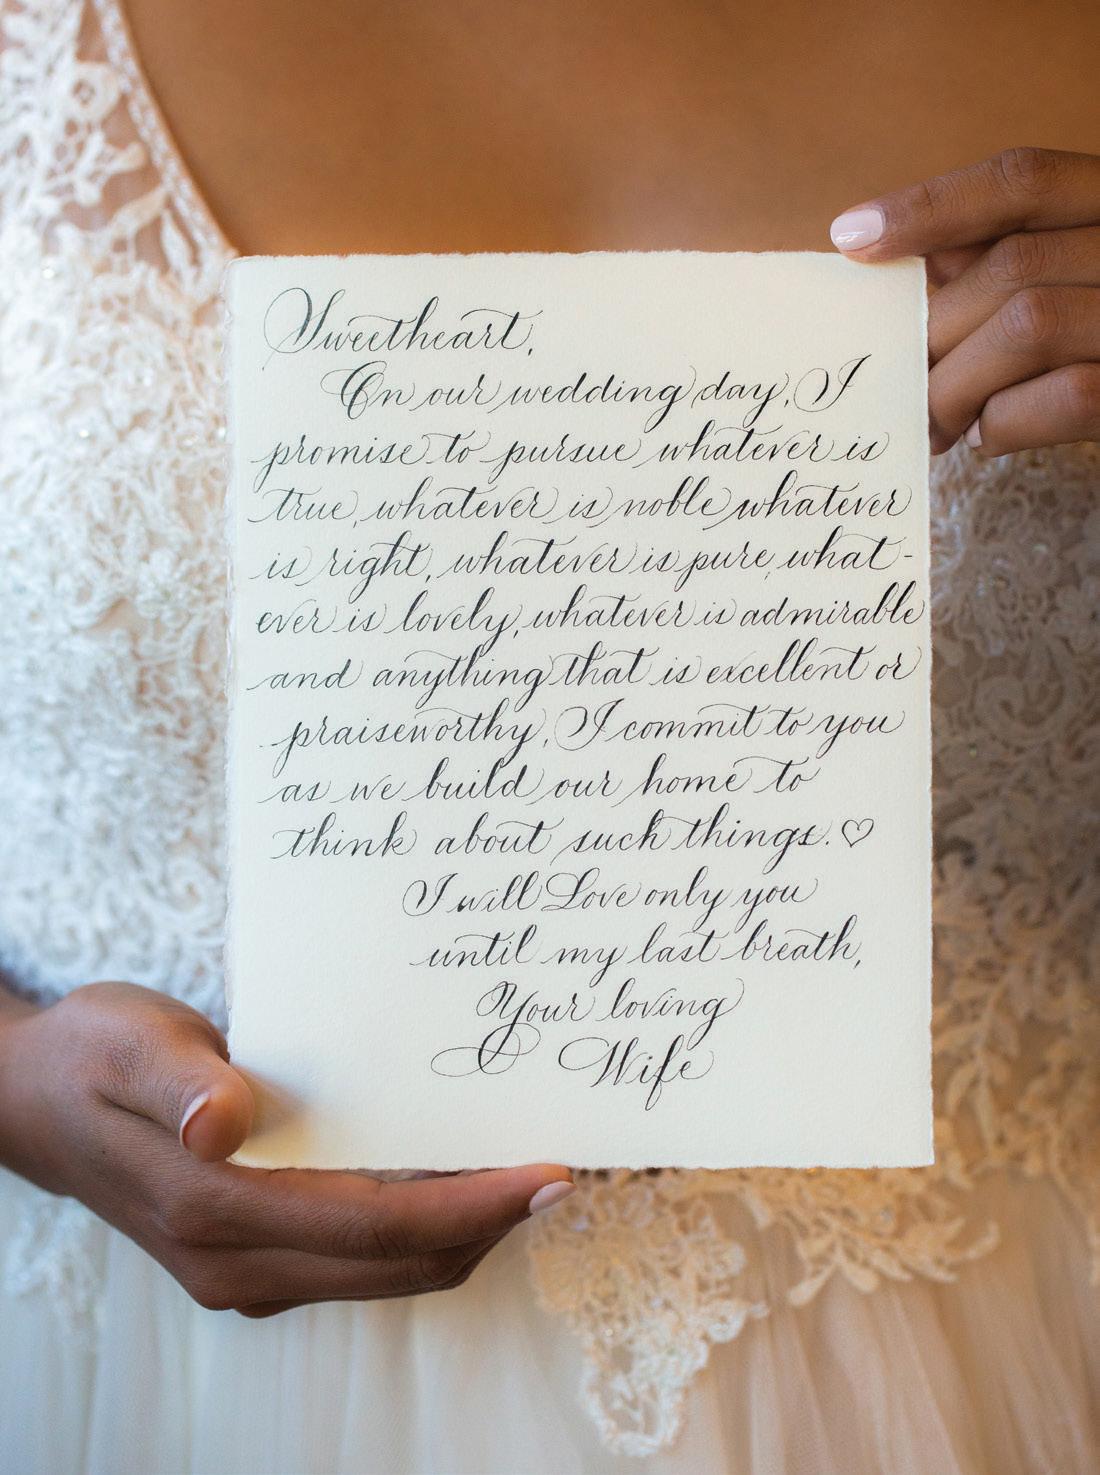 Sweetheart,
On our wedding day, I
promise to pursue whatever is
true, whatever is noble whatever
is right, whatever is pure, what-
ever is lovely, whatever is admirable
and anything that is excellent or
praiseworthy, I commit to you
as we build our home to
think about such things. ♡
I will Love only you
until my last breath,
Your loving
Wife